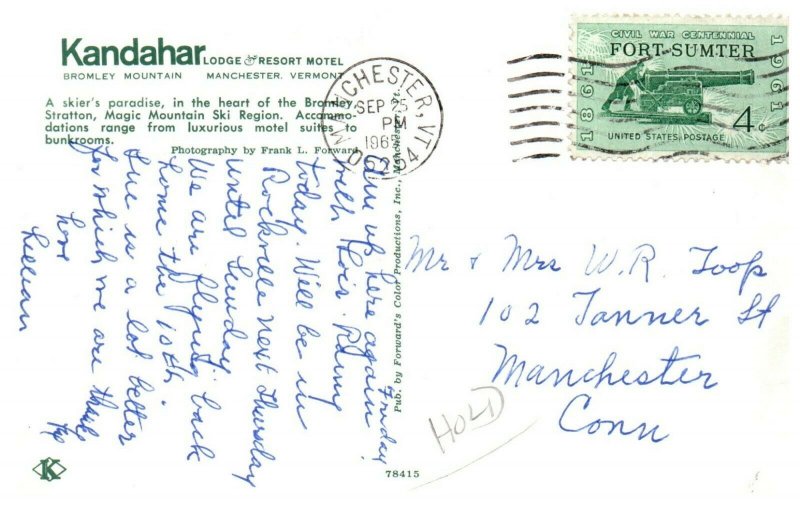 Kandahar LODGE & RESORT MOTEL
BROMLEY MOUNTAIN MANCHESTER, VERMONT
A skier's paradise, in the heart of the Bromley,
Stratton, Magic Mountain Ski Region. Accommo-
dations range from luxurious motel suites to
bunkrooms.
Photography by Frank L. Forward
MANCHESTER, VT.
SEP 25
PM
1965
CIVIL WAR CENTENNIAL
FORT SUMTER
1861
1961
4c
UNITED STATES POSTAGE
Friday
Am up here again
with Lois. Rainy
today. Will be in
Rockville next Thursday
until Sunday.
We are flying back
home the 10th.
Sue is a lot better
for which we are thankful
Love
Lillian
Pub. by Forward's Color Productions, Inc., Manchester, Vt.
Mr & Mrs W.R. Toop
102 Tanner St
Manchester
Conn
HOLD
K
78415